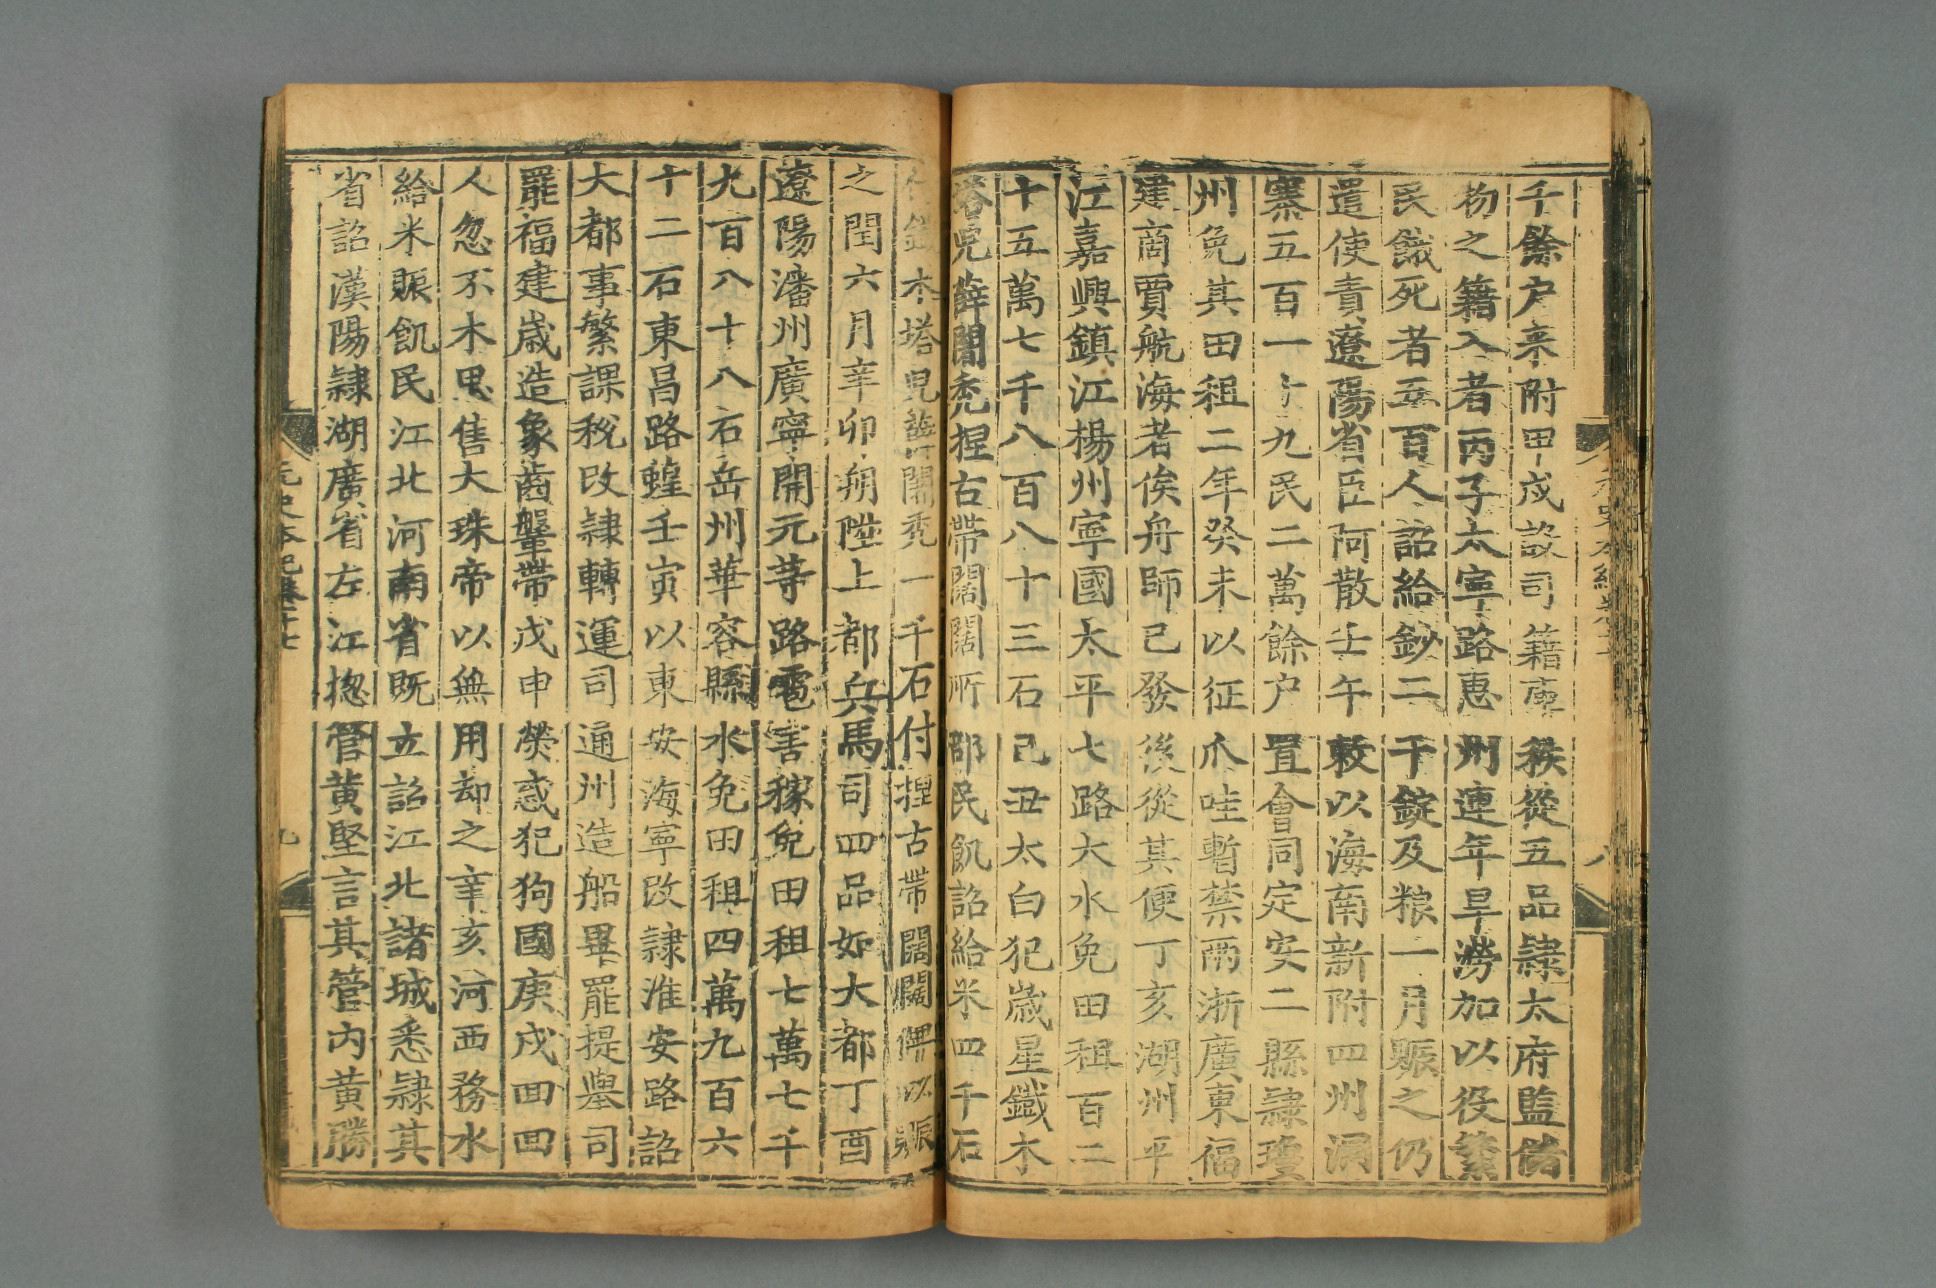 千餘户来附甲戌設司籍庫秩從五品隷太府監儲
物之籍入者丙子太寜路惠州連年旱澇加以役繁
民餓死者五百人詔給鈔二千錠及粮一月賑之仍
遣使責遼陽省臣阿散壬午敕以海南新附四州洞
寨五百一十九民二萬餘户置會同定安二縣隷瓊
州免其田租二年癸未以征爪哇暫禁兩浙廣東福
建商賈航海者俟舟師已發後從其便丁亥湖州平
江嘉興鎮江楊州寧國太平七路大水免田租百二
十五萬七千八百八十三石己丑太白犯歲星鐵木
塔兒薛闍禿捏古帶闊闊所部民飢詔給米四千石
鐵木塔兒薛闍禿一千石付捏古帶闊闊俾以賑
之閏六月辛卯朔陞上都兵馬司四品如大都丁酉
遼陽瀋州廣寧開元等路雹害稼免田租七萬七千
九百八十八石岳州華容縣水免田租四萬九百六
十二石東昌路蝗壬寅以東安海寧改隷淮安路詔
大都事繁課稅改隷轉運司通州造船畢罷提舉司
罷福建歲造象齒鞶帶戊申熒惑犯狗國庚戌回回
人忽不木思售大珠帝以無用却之辛亥河西務水
給米賑飢民江北河南省既立詔江北諸城悉隷其
省詔漢陽隷湖廣省左江揔管黄堅言其管内黄勝
元史本紀卷十七
九
八